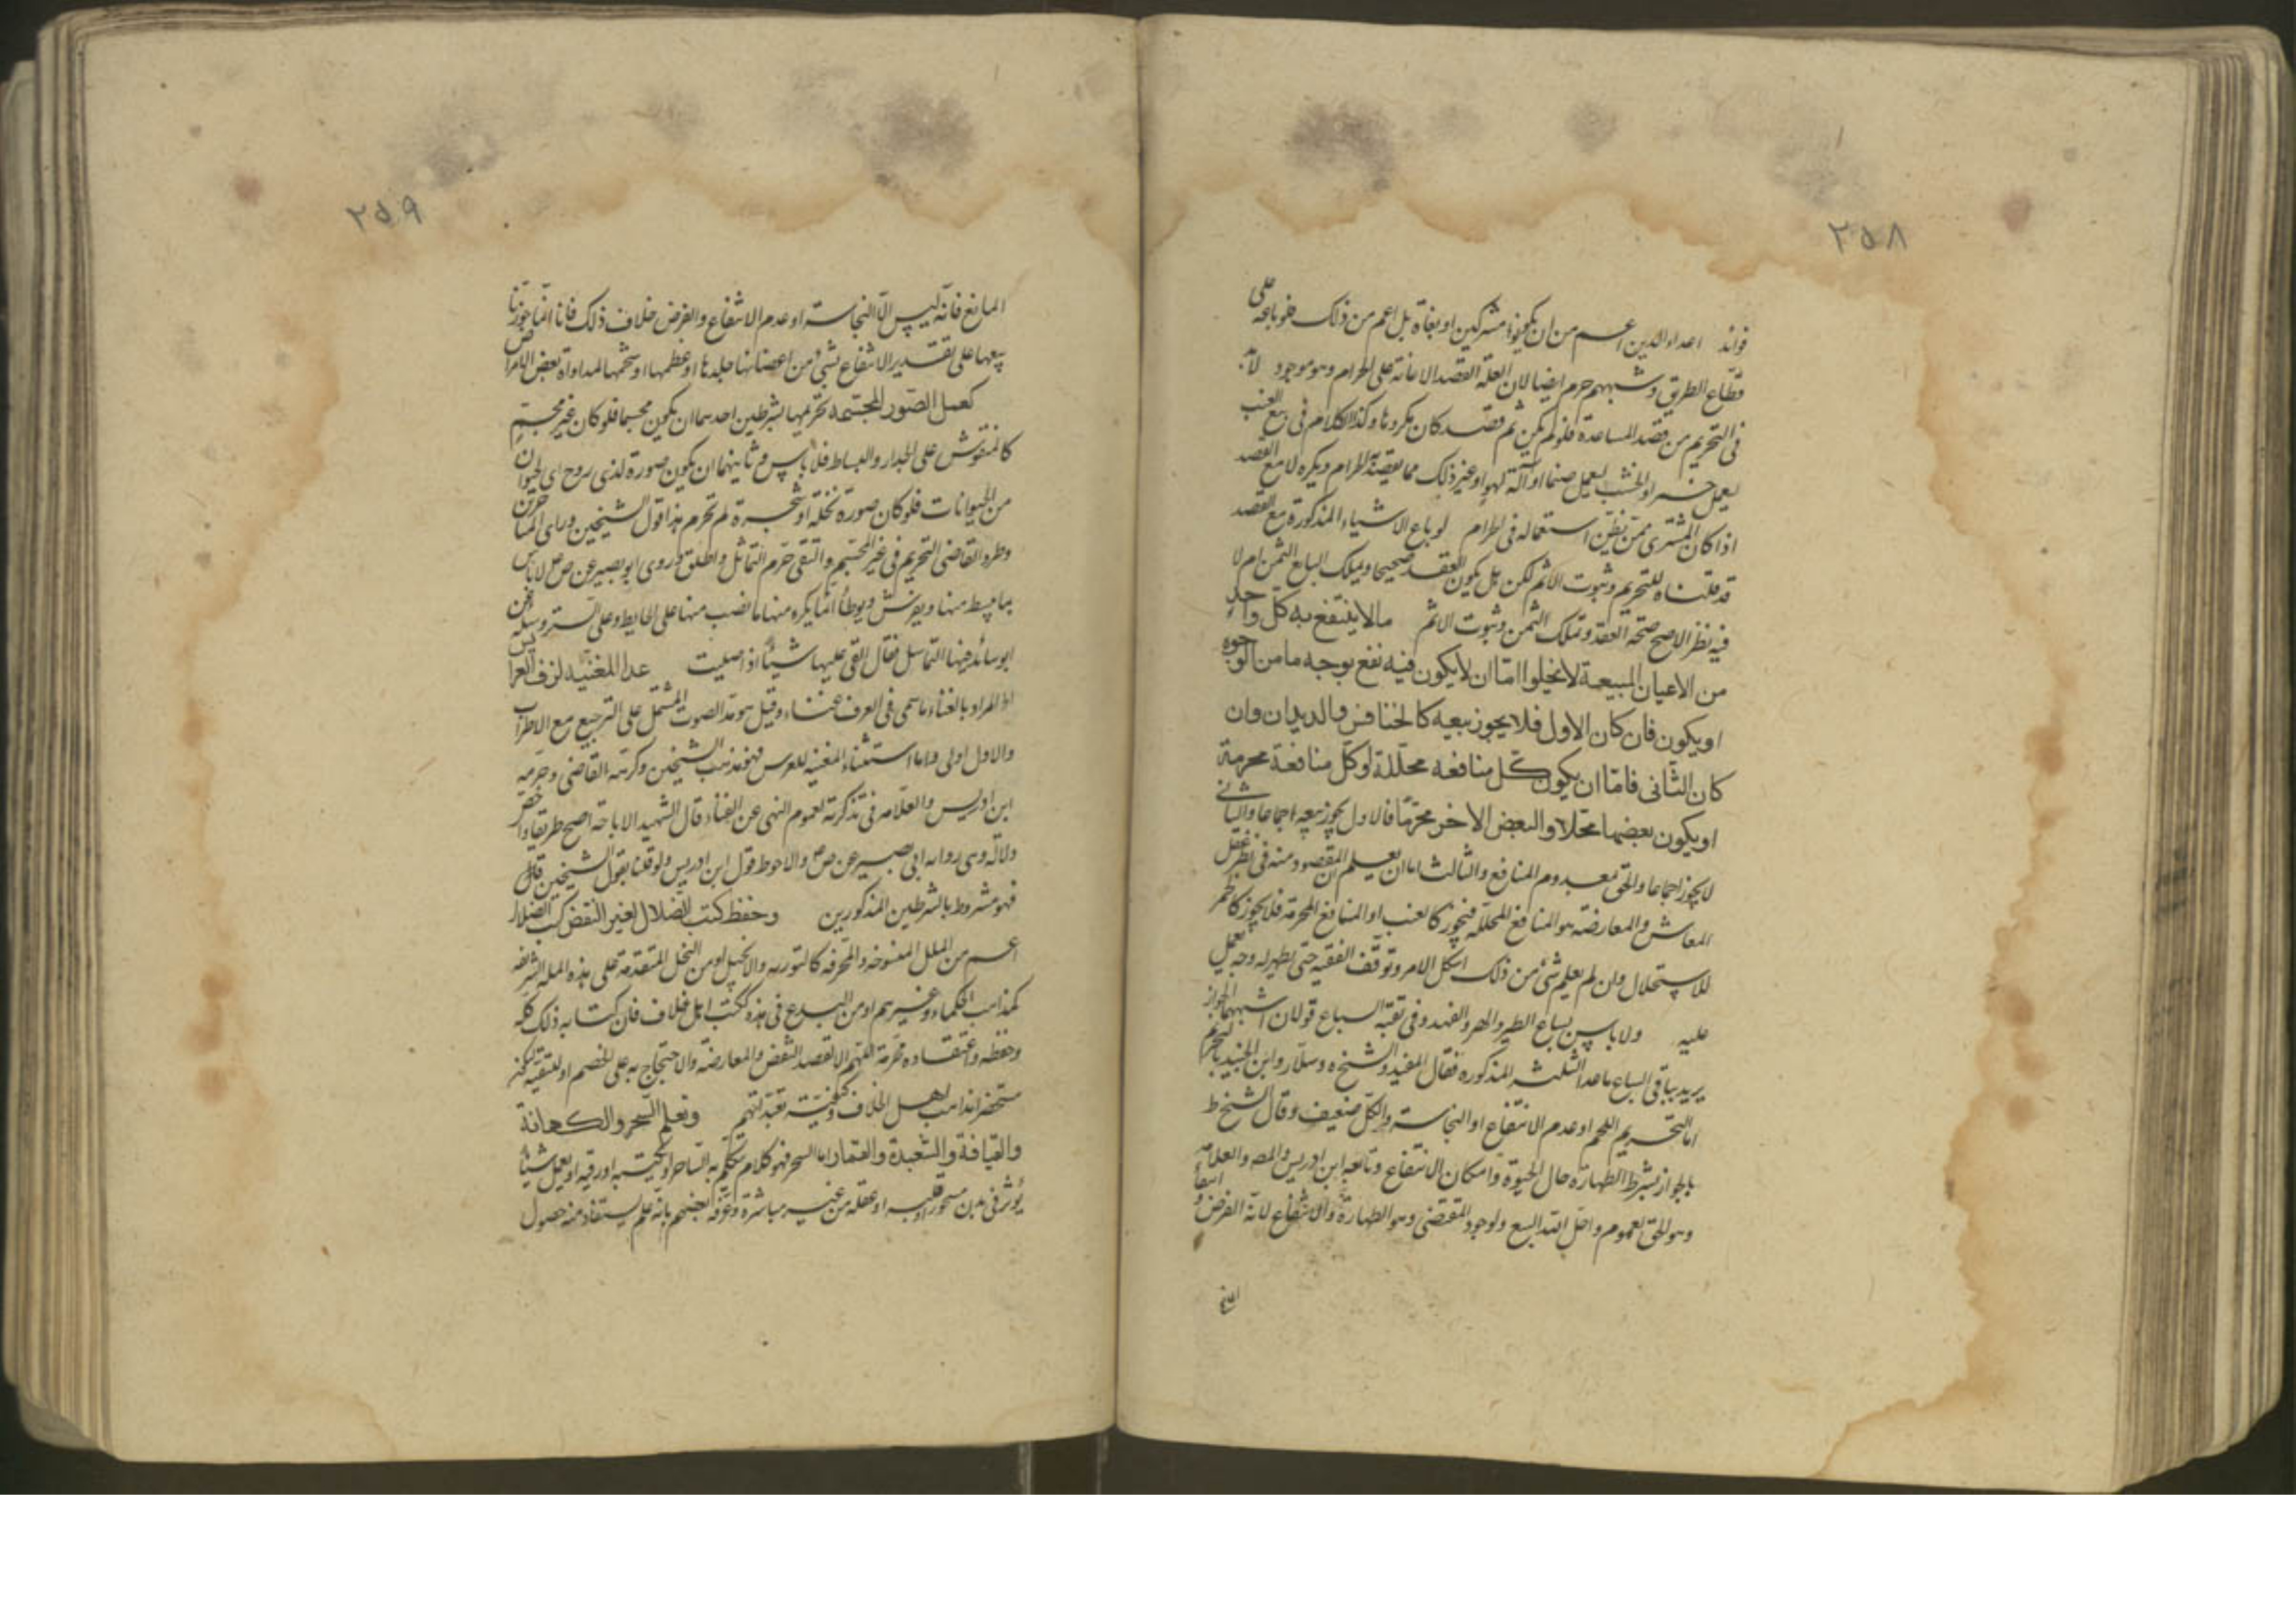 ٢٥٨
فوائد اعداء الدين اعم من ان يكونوا مشركين او بغاة بل اعم من ذلك فلو باعه على
قطاع الطريق وشبههم حرم ايضا لان العلة القصد الاعانة على الحرام وهو موجود لابد
فى التحريم من قصد المساعدة فلو لم يكن ثم قصد كان مكروها وكذا الكلام فى بيع العنب
ليعمل خمرا والخشب ليعمل صنما او آلة لهو او غير ذلك مما يقصد الحرام ويكره لا مع القصد
اذا كان المشترى ممن يظن استعماله فى الحرام لو باع الاشياء المذكورة مع القصد
قد قلنا للتحريم وثبوت الاثم لكن هل يكون العقد صحيحا ويملك البايع الثمن ام لا
فيه نظر الاصح صحة العقد وتملك الثمن وثبوت الاثم مالا ينتفع به كل واحد
من الاعيان المبيعة لا يخلوا اما ان لا يكون فيه نفع بوجه ما من الوجوه
او يكون فان كان الاول فلا يجوز بيعه كالخنافس والديدان وان
كان الثانى فاما ان يكون كل منافعه محللة او كل منافعة محرمة
او يكون بعضها محللا والبعض الاخر محرما فالاول يجوز بيعه اجماعا والثانى
لا يجوز اجماعا والحق بمعدوم المنافع والثالث اما ان يعلم ان المقصود منه فى نظر عقل
المعاش والمعارضة هو المنافع المحللة فيجوز كالعنب او المنافع المحرمة فلا يجوز كالخمر
للاستحلال وان لم يعلم شئ من ذلك اشكل الامر وتوقف الفقيه حتى يظهر له وجه يعمل
عليه ولا باس بسباع الطير والهر والفهد وفى بقية السباع قولان اشبههما الجواز
يريد بباقى السباع ما عدا الثلثة المذكورة فقال المفيد والشيخ ه وسلار وابن الجنيد بالتحريم
اما لتحريم اللحم او عدم الانتفاع او النجاسة والكل ضعيف وقال الشيخ ط
بالجواز بشرط الطهارة حال الحيوة وامكان الانتفاع وتابعه ابن ادريس والمص والعلامة
وهو الحق لعموم واحل الله البيع ولوجود المقتضى وهو الطهارة والانتفاع لانه الفرض وانتفاء
المانع
٢٥٩
المانع فانه ليس الا النجاسة او عدم الانتفاع والفرض خلاف ذلك فانا انما جوزنا
بيعها على تقدير الانتفاع بشئ من اعضائها جلدها او عظمها او شحمها لمداواة بعض الامراض
كعمل الصور المجسمة تحريمها بشرطين احدهما ان يكون مجسما فلو كان غير مجسم
كالمنقوش على الجدار والبساط فلا باس وثانيهما ان يكون صورة لذى روح اى الحيوان
من الحيوانات فلو كان صورة نخلة او شجرة لم تحرم هذا قول الشيخين وراى المتاخرين
وطرد القاضى التحريم فى غير المجسم والتقى حرم التماثل واطلق وروى ابو بصير عن ص لا باس
بما يبسط منها ويفرش ويوطأ انما يكره منها ما نصب منها على الحايط وعلى الستر وسئله عن
ابو سائد فيها التماسل فقال القى عليها شيئا اذا صليت عدا المغنيه لزف العرائس
اذ المراد بالغناء ما سمى فى العرف غناء وقيل هو مد الصوت المشتمل على الترجيع مع الاطراب
والاول اولى واما استثناء المغنية للعرس فهو مذهب الشيخين وكرهه القاضى وحرمه
ابن ادريس والعلامة فى تذكرته لعموم النهى عن الغناء قال الشهيد الاباحة اصح طريقا واخصر
دلالة وهى رواية ابى بصير عن ص والاحوط قول ابن ادريس ولو قلنا بقول الشيخين قال
فهو مشروط بالشرطين المذكورين وحفظ كتب الضلال لغير النقض كتب الضلال
اعم من الملل المنسوخه والمحرفه كالتوريه والانجيل او من النحل المتقدمة على هذه الملة الشريفه
كمذاهب الحكماء وغيرهم او من البدع فى هذه ككتب اهل خلاف فان كتابه ذلك كله
وحفظه واعتقاده محرمة اللهم الا لقصد النقض والمعارضة والاحتجاج به على الخصم او للتقية لكنه
مستحضرا مذاهب اهل الخلاف وكيفية تعبداتهم وتعلم السحر والكهانة
والقيافة والشعبدة والقمار اما السحر فهو كلام يتكلم به الساحر او يكتبه او رقية او يعمل شيئا
يؤثر فى بدن مسحور او قلبه او عقله من غير مباشرة وعرفه بعضهم بانه علم يستفاد منه حصول